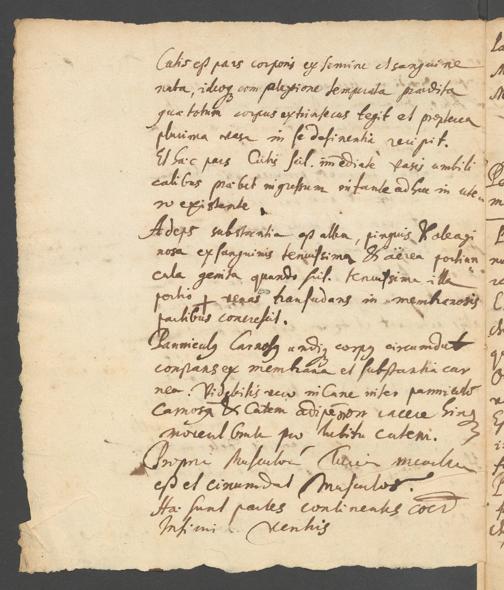 Cutis est pars corporis ex semine et sanguine
nata, ideoq complexione temperata praedita
quae totum corpus extrinsecus tegit et propterea
plurima vasa in se desinentia recipit.
Et haec pars Cutis scil. immediate vasis umbili
calibus praebet ingressum infante adhuc in ute
ro existente.
Adeps substantia est alba, pinguis & oleagi
nosa ex sanguinis tenuissima & aërea portiun
cula genita quando scil. tenuissima illa
portio venas transsudans in membranosis
partibus concrescit.
Panniculus Carnosus undiq corpus circumdat
constans ex membrana et substantia car
nea. Videbitis vero in Cane inter panniculum
carnosum & Cutem adipem non iacere hinc
movent bruta pro lubitu cutem.
Propria Musculorum
est et circumdat Musculos.
Hae sunt partes continentes
Infimi Ventris